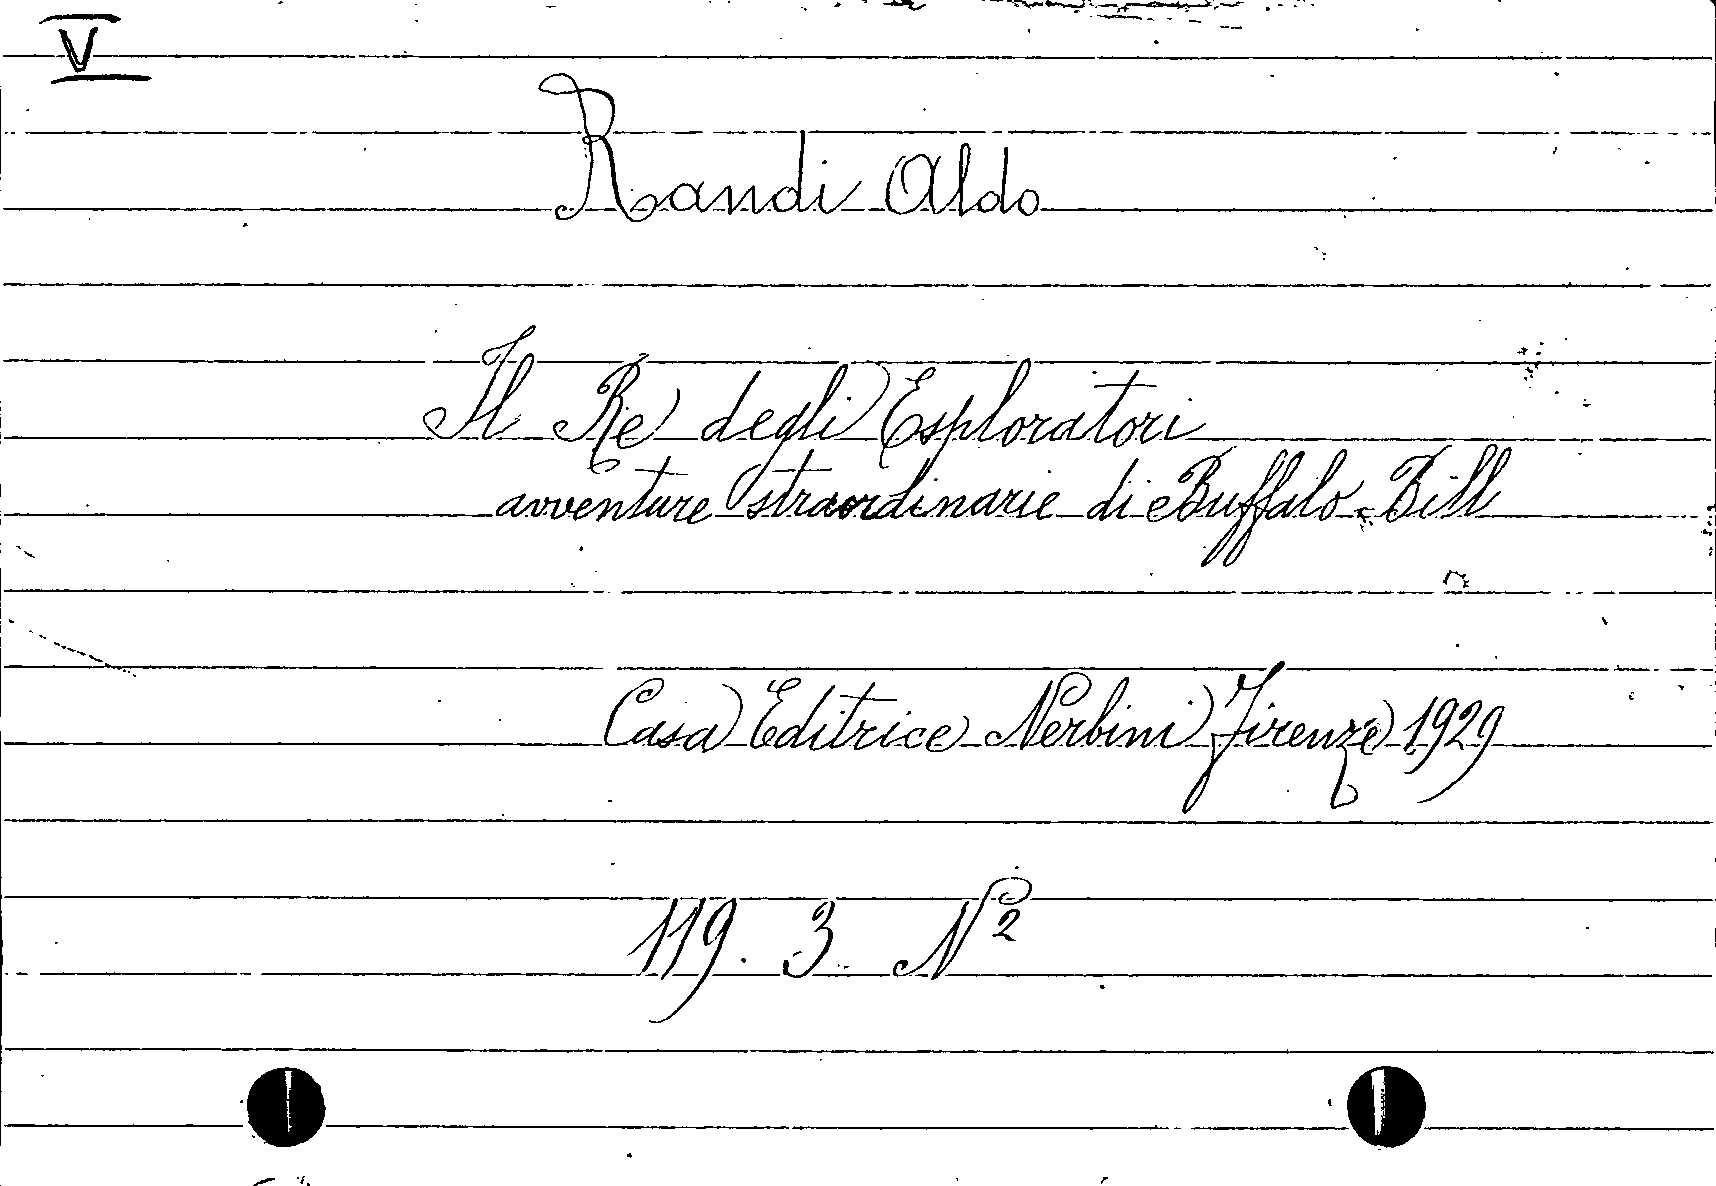 V
Randi Aldo
Il Re degli Esploratori
avventure straordinarie di Buffalo-Bill
Casa Editrice Nerbini Firenze 1929
119. 3 N 2